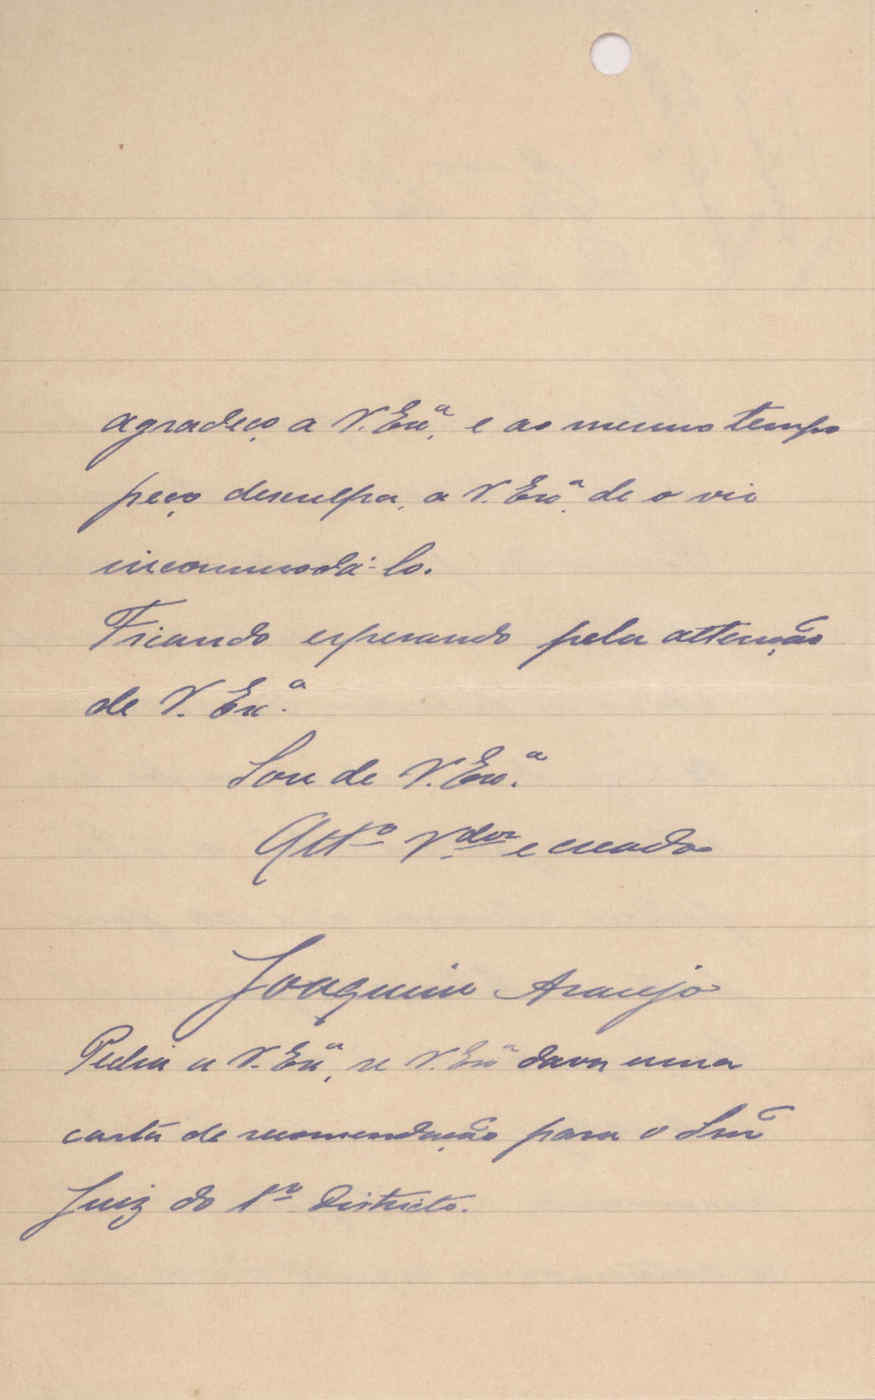 agradeço a V. Exª, e ao mesmo tempo
peço desculpa, a V. Exª. de o vir
incommodá-lo.
Ficando esperando pela attenção
de V. Exª.
Sou de V. Exª.
Attº Vdor e creado
Joaquim Araujo
Pedia a V. Exª, se V. Exª dava uma
carta de recomendação para o Snr
Juiz do 1º Districto.